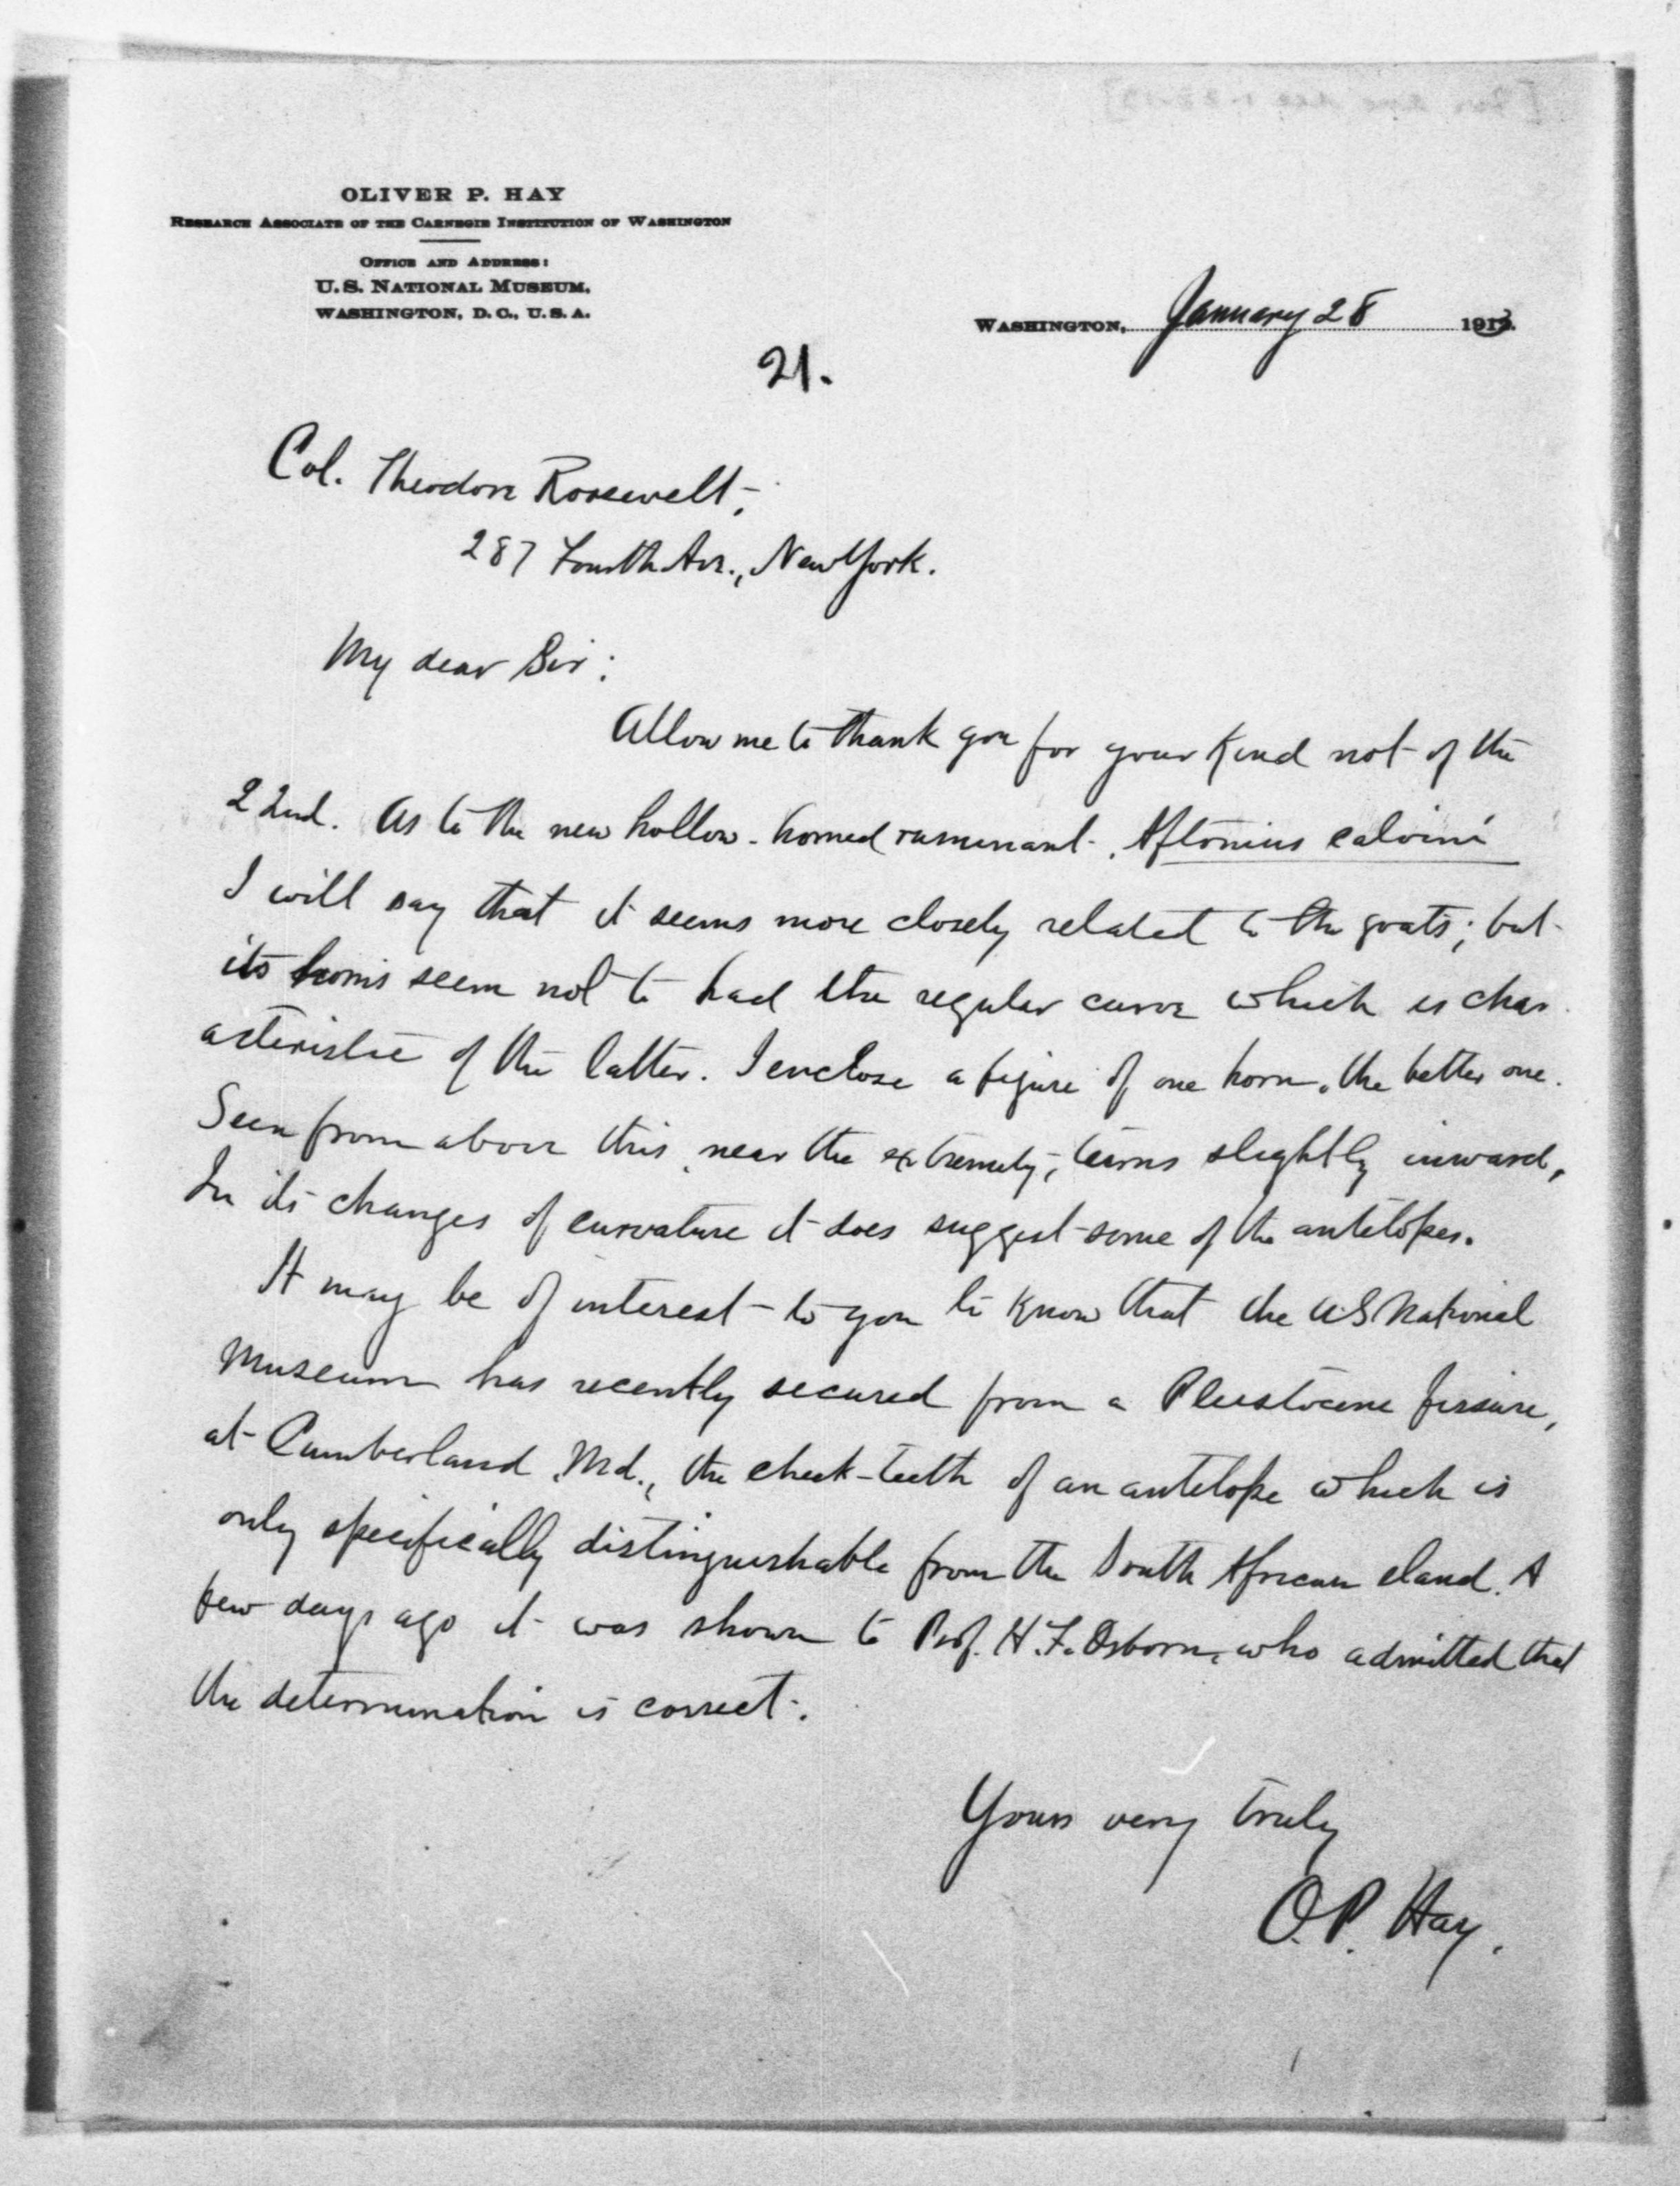 OLIVER P. HAY
RESEARCH ASSOCIATE OF THE CARNEGIE INSTITUTION OF WASHINGTON
OFFICE AND ADDRESS:
U. S. NATIONAL MUSEUM,
WASHINGTON, D. C., U. S. A.
WASHINGTON, January 28 1913.
21.
Col. Theodore Roosevelt,
287 Fourth Ave., New York.
My dear Sir:
Allow me to thank you for your kind not of the
22nd. As to the new hollow-horned ruminant, Aftonius calvini
I will say that it seems more closely related to the goats; but
its horns seem not to had the regular curve which is char-
acteristic of the latter. I enclose a figure of one horn, the better one.
Seen from above this, near the extremity, turns slightly inward,
In its changes of curvature it does suggest some of the antelopes.
It may be of interest to you to know that the U.S National
Museum has recently secured from a Pleistocene fissure,
at Cumberland, Md., the cheek-teeth of an antelope which is
only specifically distinguishable from the South African eland. A
few days ago it was shown to Prof. H. F. Osborn, who admitted that
the determination is correct.
Yours very truly
O. P. Hay.